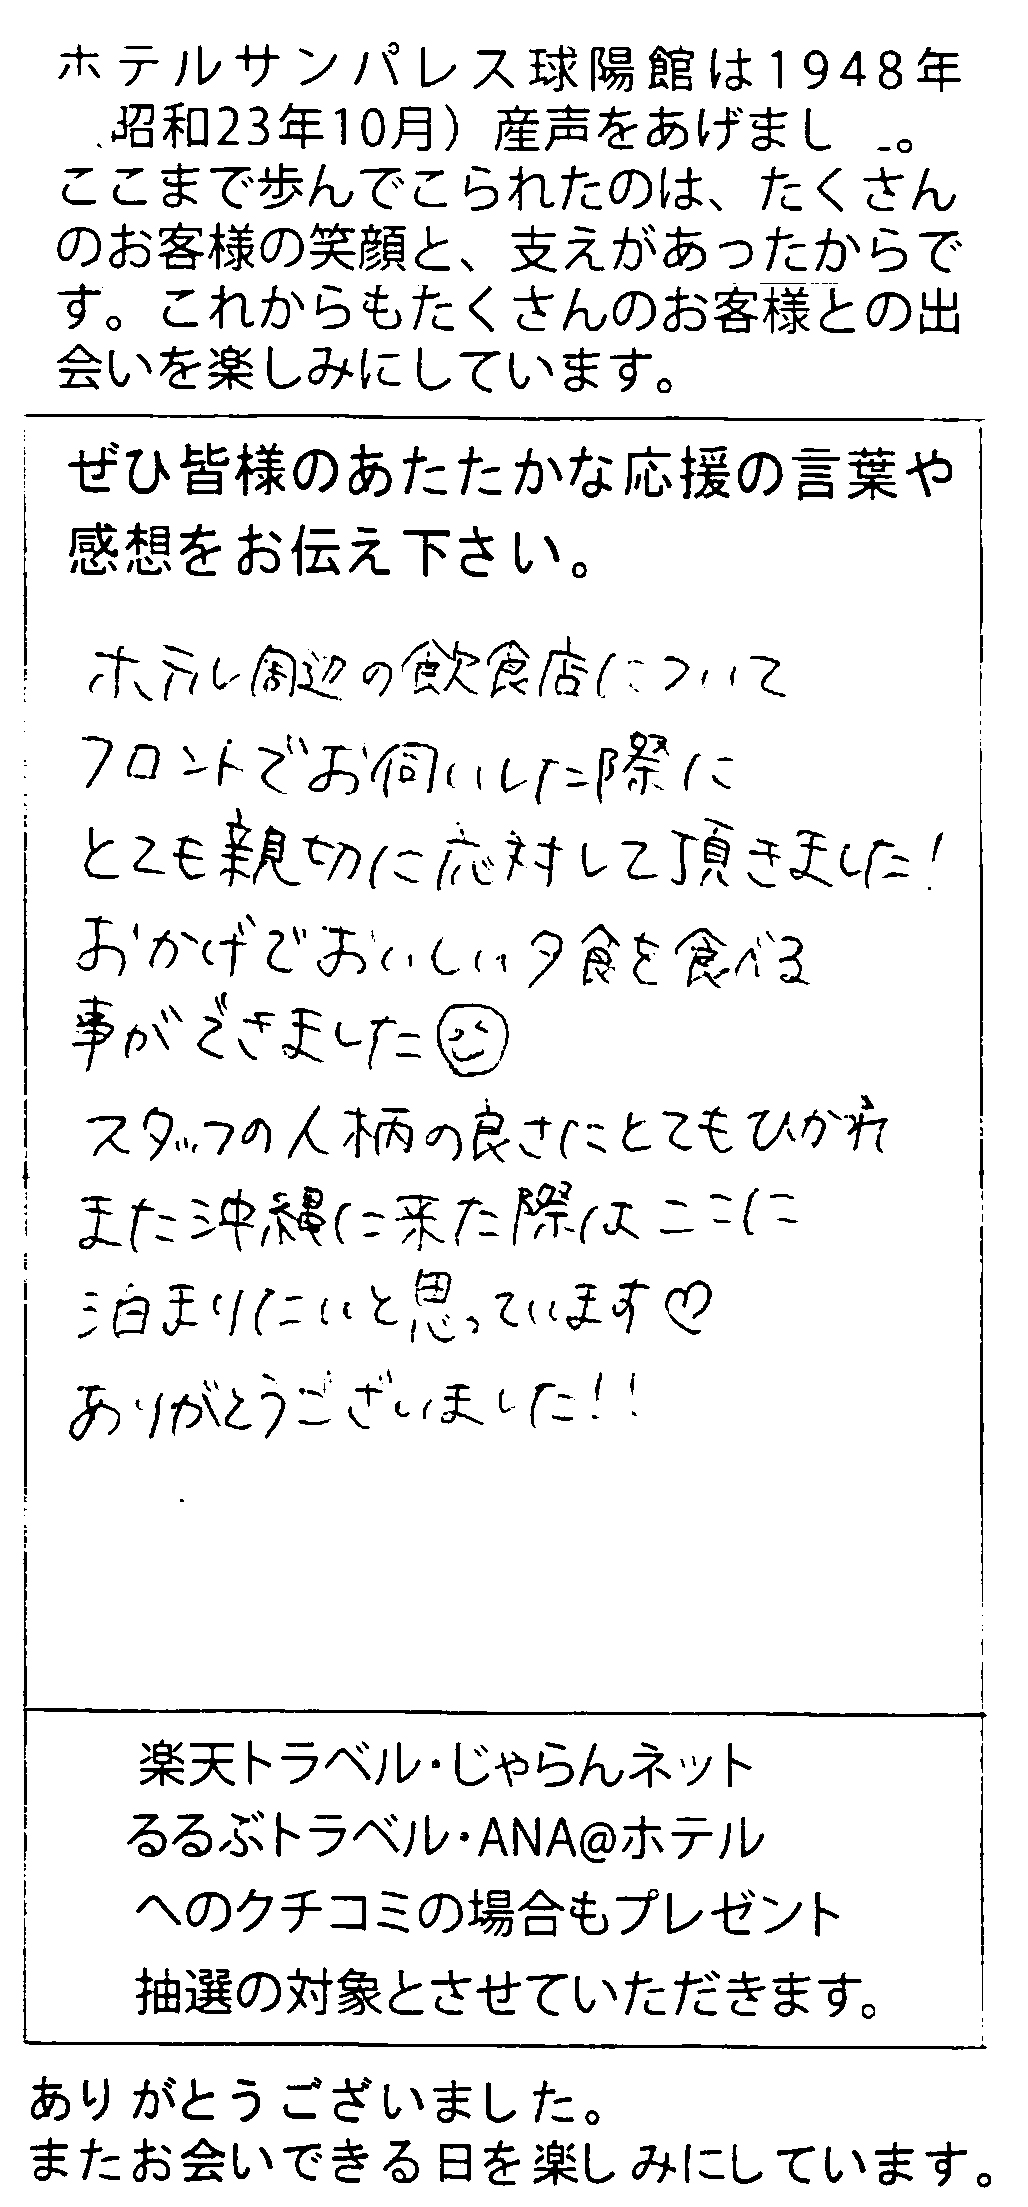 ホテルサンパレス球陽館は1948年
昭和23年10月）産声をあげまし。
ここまで歩んでこられたのは、たくさん
のお客様の笑顔と、支えがあったからで
す。これからもたくさんのお客様との出
会いを楽しみにしています。
ぜひ皆様のあたたかな応援の言葉や
感想をお伝え下さい。
ホテル周辺の飲食店について
フロントでお伺いした際に
とても親切に応対して頂きました!
おかげでおいしい夕食を食べる
事ができました☺
スタッフの人柄の良さにとてもひかれ
また沖縄に来た際はここに
泊まりたいと思っています♡
ありがとうございました!!
楽天トラベル・じゃらんネット
るるぶトラベル・ANA@ホテル
へのクチコミの場合もプレゼント
抽選の対象とさせていただきます。
ありがとうございました。
またお会いできる日を楽しみにしています。